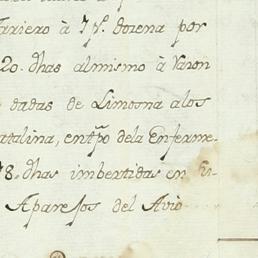 à 7 p.s dozena por
20. dhas al mismo à Varon
dadas de Limosna alos
atalina, entpõ dela Enferme-
8. dhas imbertidas en
Aparejos del Avio